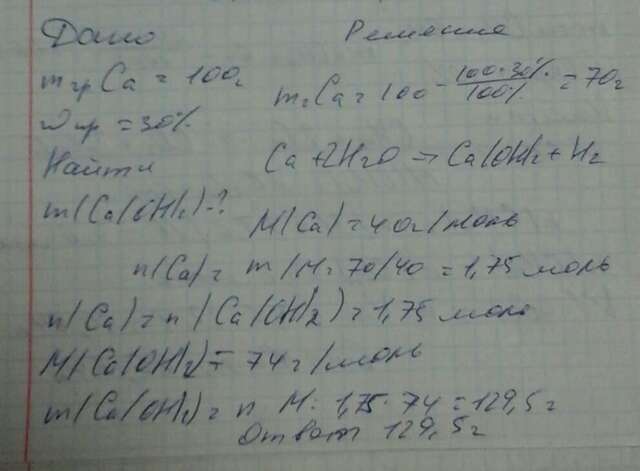 Дано
Решение
mгр Ca = 100г
mг Ca = 100 - 100·30% / 100% = 70г
wпр = 30%
Найти
Ca + 2H2O → Ca(OH)2 + H2
m(Ca(OH)2) - ?
M(Ca) = 40г/моль
n(Ca) = m/M = 70/40 = 1,75 моль
n(Ca) = n(Ca(OH)2) = 1,75 моль
M(Ca(OH)2) = 74г/моль
m(Ca(OH)2) = n M = 1,75·74 = 129,5г
Ответ 129,5г